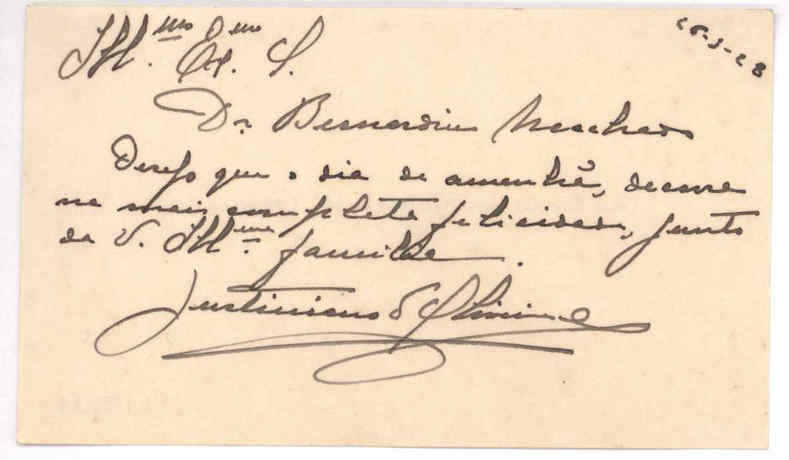 Ill.mo Ex.mo S.
Dr. Bernardino Machado
Desejo que o dia de amanhã, decorra
na mais completa felicidade, junto
da V. Ill.ma familia.
Justiniano d'Oliveira